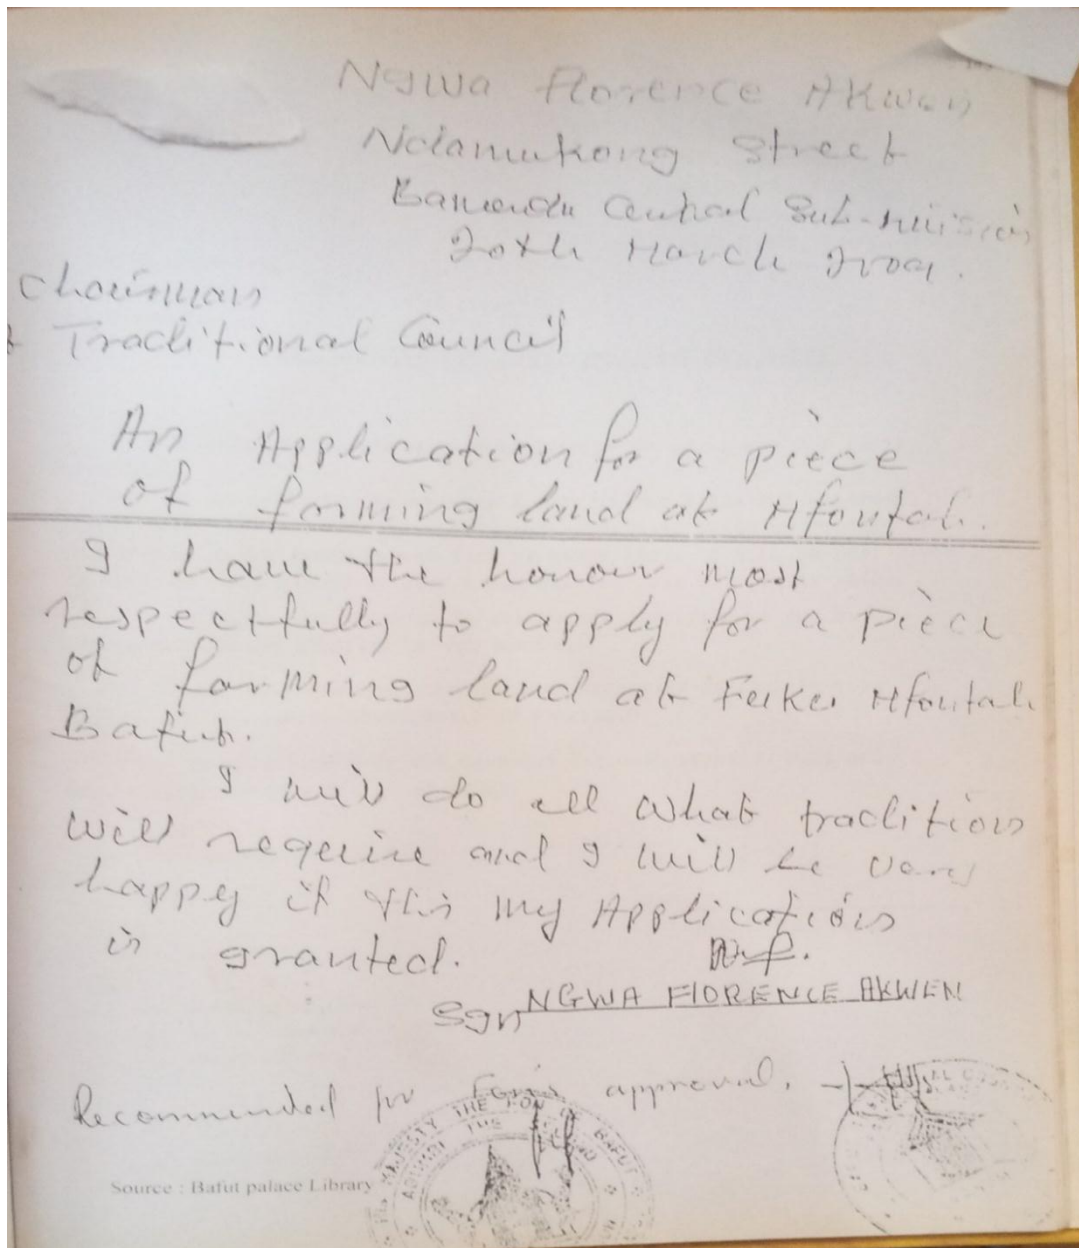 Ngwa Florence Akwen
Ndamukong Street
Bamenda Central Sub-Division
20th March 2009.
Chairman
Traditional Council
An Application for a piece
of farming land at Mfoutah.
I have the honour most
respectfully to apply for a piece
of farming land at Mfoutah
Bafut.
I will do all what tradition
will require and I will be very
happy if this my Application
is granted.
Sgn NGWA FLORENCE AKWEN
Recommended for Fon's approval.
MAJESTY THE FON BAFUT
Source : Bafut palace Library